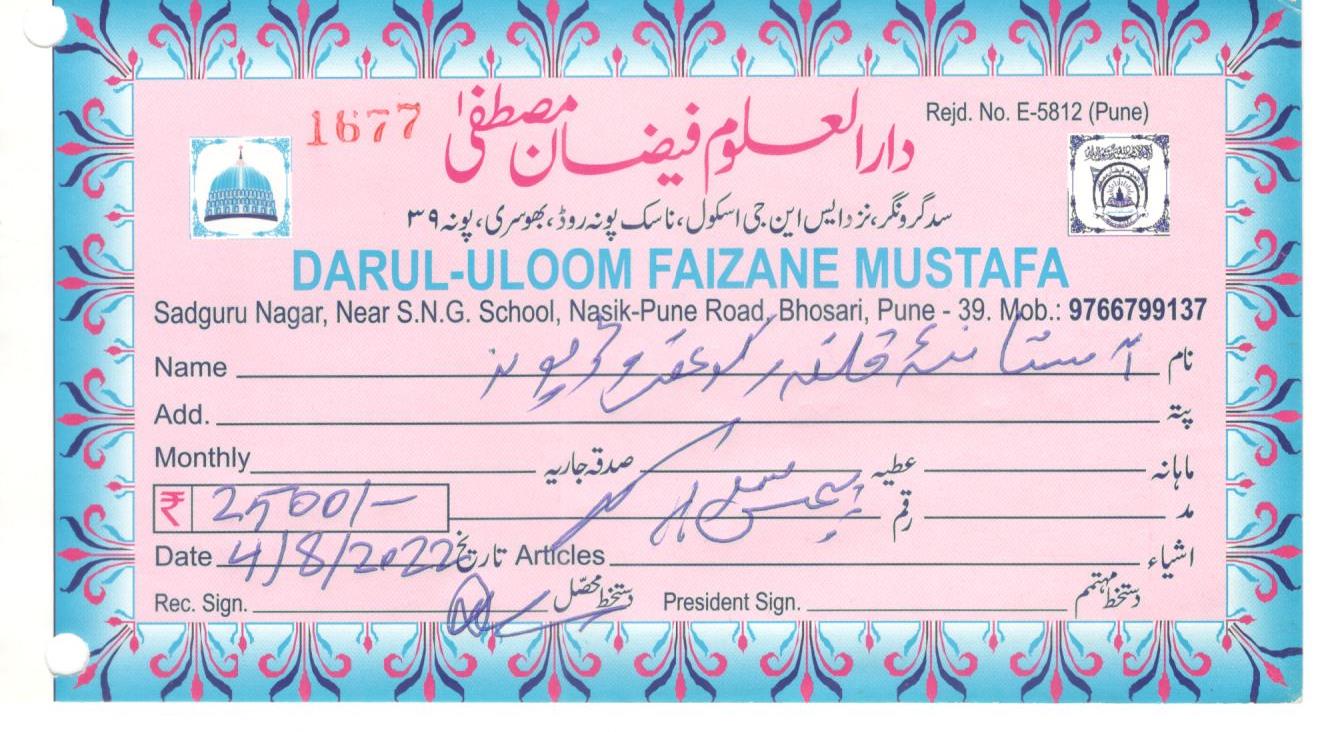 1677
دارالعلوم فیضان مصطفیٰ
Rejd. No. E-5812 (Pune)
سدگرونگر، نزد ایس این جی اسکول، ناسک پونہ روڈ، بھوسری، پونہ ۳۹
DARUL-ULOOM FAIZANE MUSTAFA
Sadguru Nagar, Near S.N.G. School, Nasik-Pune Road, Bhosari, Pune - 39. Mob.: 9766799137
Name آستانۂ نام
Add. پتہ
Monthly صدقہ جاریہ عطیہ ماہانہ
₹ 2500/- رقم مد
Date 4/8/2022 تاریخ Articles اشیاء
Rec. Sign. دستخط محصّل President Sign. دستخط مہتمم